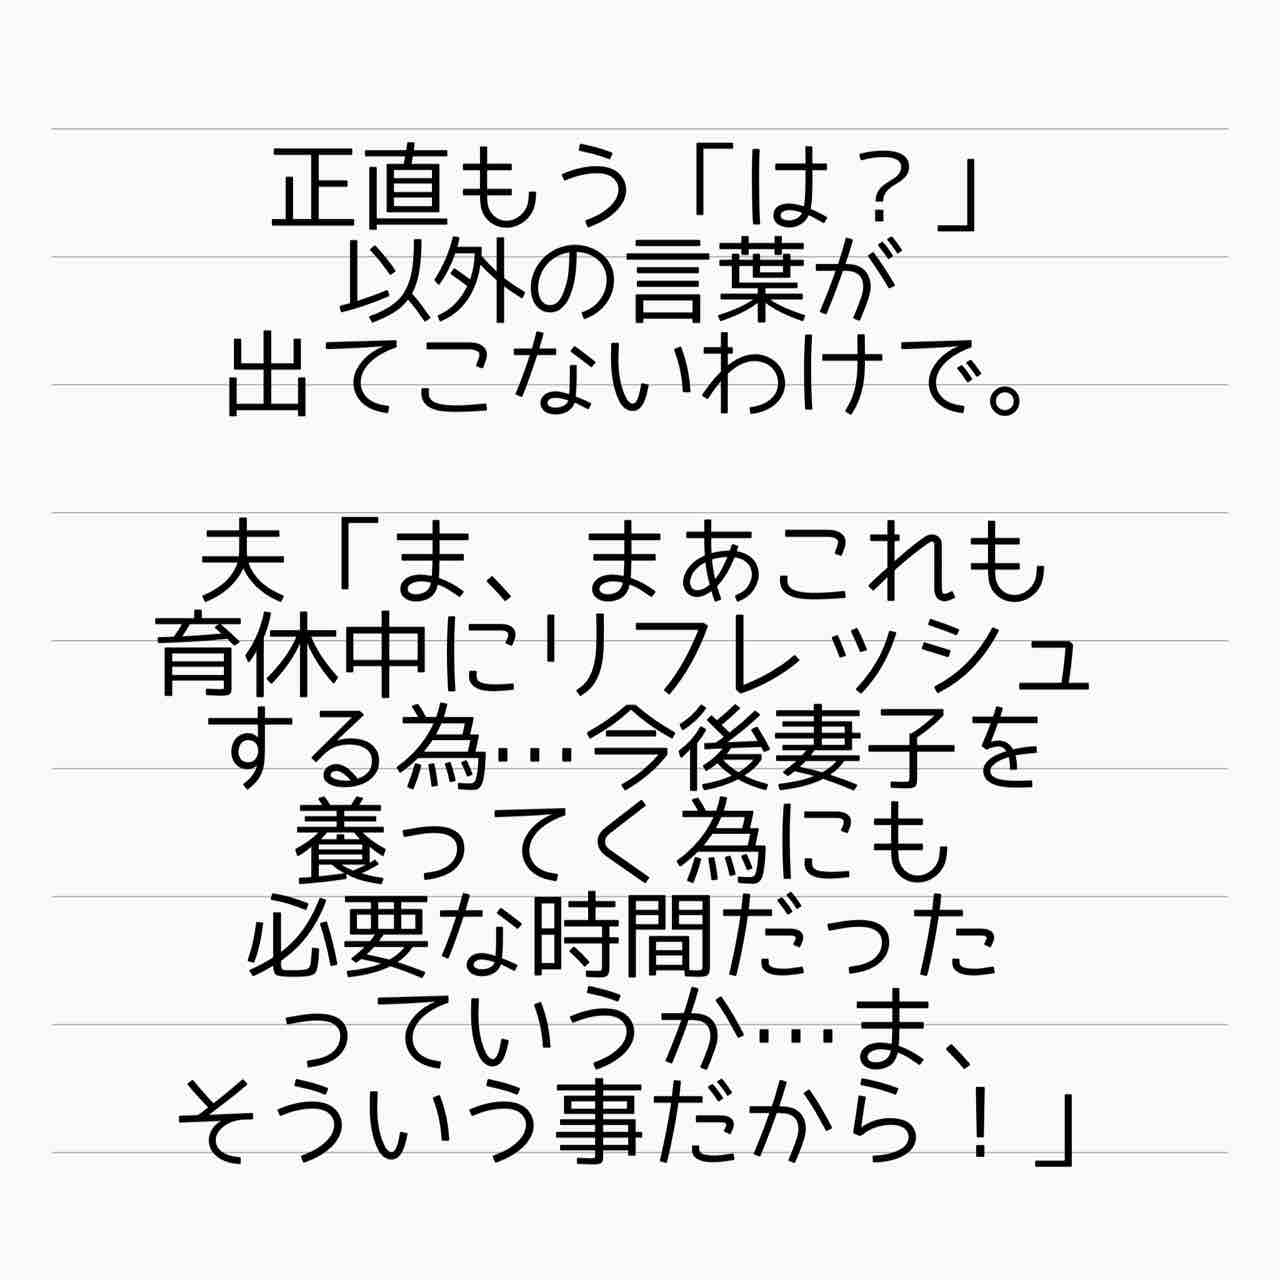 正直もう「は？」
以外の言葉が
出てこないわけで。
夫「ま、まあこれも
育休中にリフレッシュ
する為…今後妻子を
養ってく為にも
必要な時間だった
っていうか…ま、
そういう事だから！」